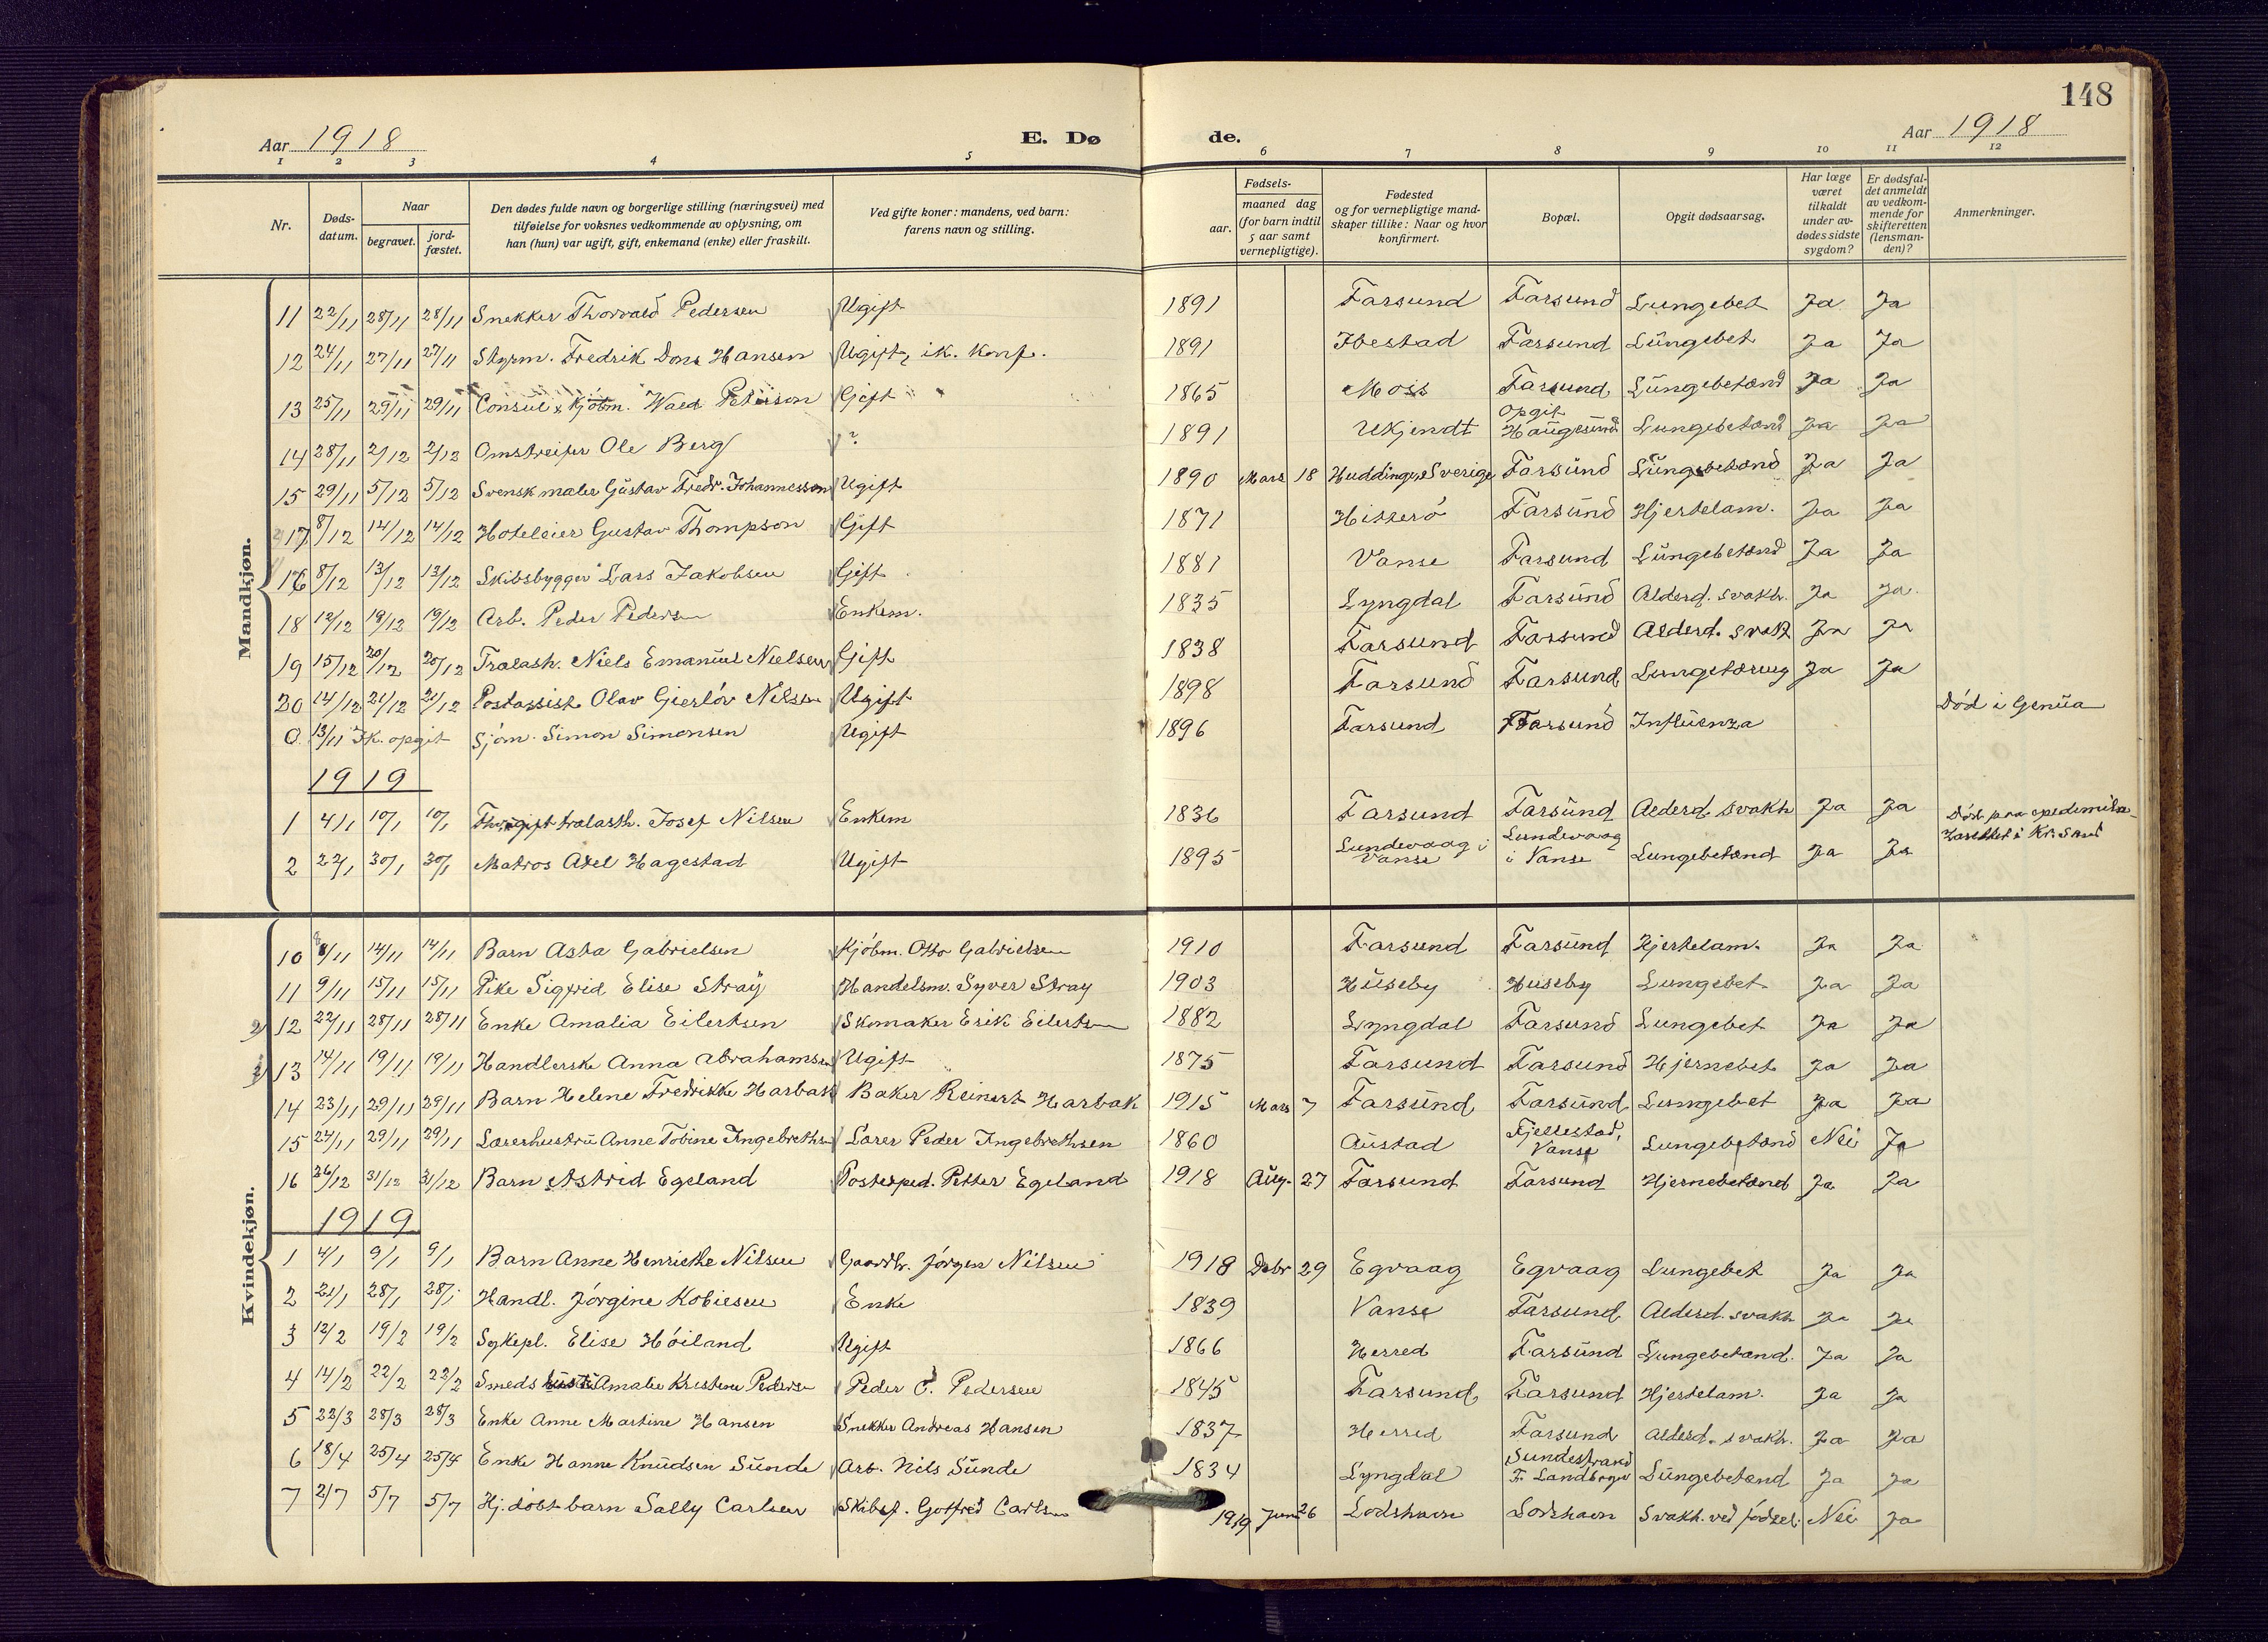 148
Aar 1918 E. Dø de. Aar 1918
1 2 3 4 5 6 7 8 9 10 11 12
Nr.
Døds-
datum.
Naar
begravet.
jord-
fæstet.
Den dødes fulde navn og borgerlige stilling (næringsvei) med
tilføielse for voksnes vedkommende av oplysning, om
han (hun) var ugift, gift, enkemand (enke) eller fraskilt.
Ved gifte koner: mandens, ved barn:
farens navn og stilling.
Fødsels-
aar.
maaned dag
(for barn indtil
5 aar samt
vernepligtige).
Fødested
og for vernepligtige mand-
skaper tillike: Naar og hvor
konfirmert.
Bopæl.
Opgit dødsaarsag.
Har læge
været
tilkaldt
under av-
dødes sidste
sygdom?
Er dødsfal-
det anmeldt
av vedkom-
mende for
skifteretten
(lensman-
den)?
Anmerkninger.
Mandkjøn.
11 22/11 28/11 28/11 Snekker Thorvald Pedersen Ugift 1891 Farsund Farsund Lungebet Ja Ja
12 24/11 27/11 27/11 Styrm. Fredrik Dons Hansen Ugift, ik. konf. 1891 Ibestad Farsund Lungebet Ja Ja
13 25/11 29/11 29/11 Consul & Kjöbm. Wald Peterson Gift 1865 Moss Farsund Lungebetænd Ja Ja
14 28/11 2/12 2/12 Omstreifer Ole Berg ? 1891 Ukjendt Opgit Haugesund Lungebetænd Ja Ja
15 29/11 5/12 5/12 Svensk maler Gustav Fredr. Johannesson Ugift 1890 Mars 18 Huddinge, Sverige Farsund Lungebetænd Ja Ja
17 8/12 14/12 14/12 Hoteleier Gustav Thompson Gift 1871 Hitterö Farsund Hjertelam. Ja Ja
16 8/12 13/12 13/12 Skibsbygger Lars Jakobsen Gift 1881 Vanse Farsund Lungebetænd Ja Ja
18 12/12 19/12 19/12 Arb. Peder Pedersen Enkem. 1835 Lyngdal Farsund Alderd. svakh. Ja Ja
19 15/12 20/12 20/12 Trælasth. Niels Emanuel Nielsen Gift 1838 Farsund Farsund Alderd. svakh Ja Ja
20 14/12 21/12 21/12 Postassist. Olav Gierlöv Nilsen Ugift 1898 Farsund Farsund Lungetæring Ja Ja
0 13/11 Ik. opgit Sjöm. Simon Simonsen Ugift 1896 Farsund Farsund Influenza Död i Genua
1919
1 4/1 10/1 10/1 trælasth. Josef Nilsen Enkem 1836 Farsund Farsund Alderd. svakh Ja Ja
2 22/1 30/1 30/1 Matros Axel Hagestad Ugift 1895 Lundevaag i Vanse Lundevaag i Vanse Lungebetænd Ja Ja Död paa epedemila- i Kr. Sand
Kvindekjøn.
10 8/11 14/11 14/11 Barn Asta Gabrielsen Kjöbm. Otto Gabrielsen 1910 Farsund Farsund Hjertelam. Ja Ja
11 9/11 15/11 15/11 Pike Sigfrid Elise Stray Handelsm. Syver Stray 1903 Huseby Huseby Lungebet Ja Ja
12 22/11 28/11 28/11 Enke Amalia Eilertsen Skomaker Erik Eilertsen 1882 Lyngdal Farsund Lungebet Ja Ja
13 14/11 19/11 19/11 Handlerske Anna Abrahamsen Ugift 1875 Farsund Farsund Hjernebet Ja Ja
14 23/11 29/11 29/11 Barn Helene Fredrikke Harbak Baker Reinert Harbak 1915 Mars 7 Farsund Farsund Lungebet Ja Ja
15 24/11 29/11 29/11 Lærerhustru Anne Tobine Ingebrethsen Lærer Peder Ingebrethsen 1860 Austad Fjellestad, Vanse Lungebetænd Nei Ja
16 26/12 31/12 31/12 Barn Astrid Egeland Postexped. Petter Egeland 1918 Aug. 27 Farsund Farsund Hjernebetænd Ja Ja
1919
1 4/1 9/1 9/1 Barn Anne Henriethe Nilsen Gaardbr. Jörgen Nilsen 1918 Debr 29 Egvaag Egvaag Lungebet Ja Ja
2 21/1 28/1 28/1 Handl. Jörgine Kobiesen Enke 1839 Vanse Farsund Alderd. svakh Ja Ja
3 12/2 19/2 19/2 Sykepl. Elise Höiland Ugift 1866 Herred Farsund Lungebetænd. Ja Ja
4 14/2 22/2 22/2 Smeds hustru Amalie Kristine Pedersen Peder O. Pedersen 1845 Farsund Farsund Hjertelam. Ja Ja
5 22/3 28/3 28/3 Enke Anne Martine Hansen Snekker Andreas Hansen 1837 Herred Farsund Alderd. svakh. Ja Ja
6 18/4 25/4 25/4 Enke Hanne Knudsen Sunde Arb. Nils Sunde 1834 Lyngdal Sundestrand F. Landsogn Lungebetænd Ja Ja
7 2/7 5/7 5/7 Hj. döbt barn Sally Carlsen Skibsf. Gotfred Carlsen 1919 Juni 26 Lodshavn Lodshavn Svakh. ved födsel. Nei Ja